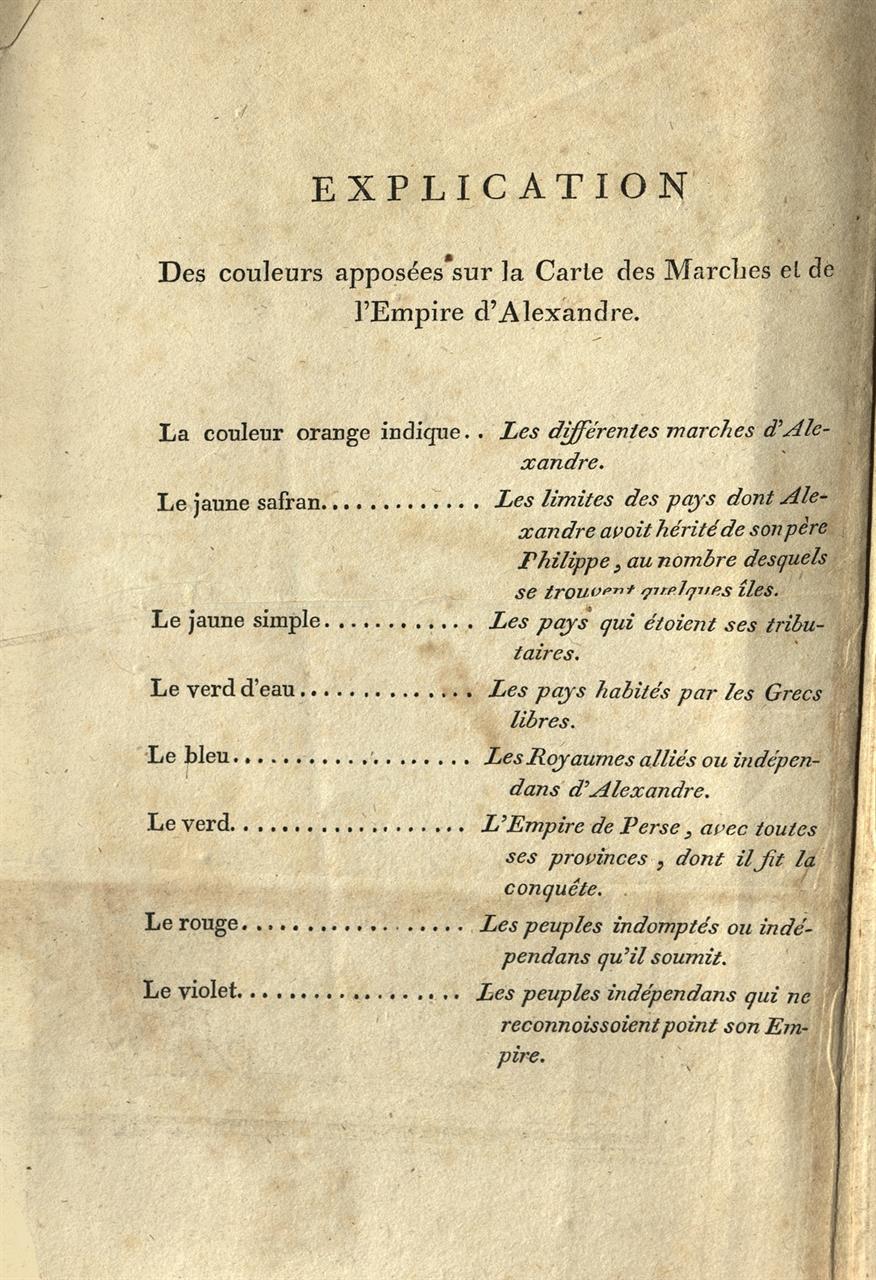 EXPLICATION
Des couleurs apposées sur la Carte des Marches et de
l'Empire d'Alexandre.
La couleur orange indique. . Les différentes marches d'Ale-
xandre.
Le jaune safran. . . . . . . . . . . . . Les limites des pays dont Ale-
xandre avoit hérité de son père
Philippe, au nombre desquels
se trouvent quelques îles.
Le jaune simple. . . . . . . . . . . . Les pays qui étoient ses tribu-
taires.
Le verd d'eau. . . . . . . . . . . . . . Les pays habités par les Grecs
libres.
Le bleu. . . . . . . . . . . . . . . . . . . Les Royaumes alliés ou indépen-
dans d'Alexandre.
Le verd. . . . . . . . . . . . . . . . . . . L'Empire de Perse, avec toutes
ses provinces, dont il fit la
conquête.
Le rouge. . . . . . . . . . . . . . . . . . Les peuples indomptés ou indé-
pendans qu'il soumit.
Le violet. . . . . . . . . . . . . . . . . . Les peuples indépendans qui ne
reconnoissoient point son Em-
pire.